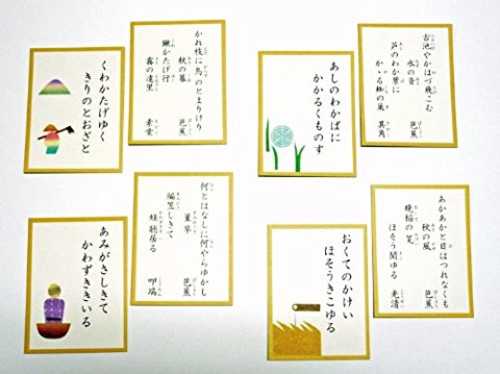 くわかたげゆく
きりのとおざと
かれ枝に烏のとまりけり
秋の暮 芭蕉
鍬かたげ行
霧の遠里 素堂
あしのわかばに
かかるくものす
古池やかはづ飛こむ
水の音 芭蕉
芦のわか葉に
かゝる蜘の巣 其角
あみがさしきて
かわずききいる
何とはなしに何やらゆかし
菫草 芭蕉
編笠しきて
蛙聴居る 叩端
おくてのかけい
ほそうきこゆる
あかあかと日はつれなくも
秋の風 芭蕉
晩稲の筧
ほそう聞ゆる 光清